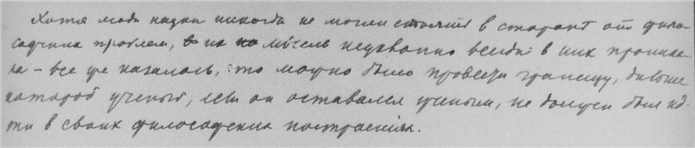 Хотя люди науки никогда не могли стоять в стороне от фило-
софских проблем, и их мысль неуклонно всегда в них проника-
ла – все же казалось, что можно было провести границу, дальше
которой ученый, если он оставался ученым, не должен был ид-
ти в своих философских построениях.